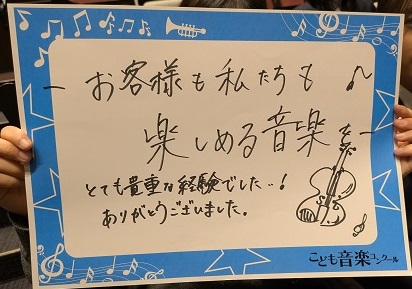 －お客様も私たちも
楽しめる音楽－
とても貴重な経験でした‥!
ありがとうございました。
こども音楽コンクール